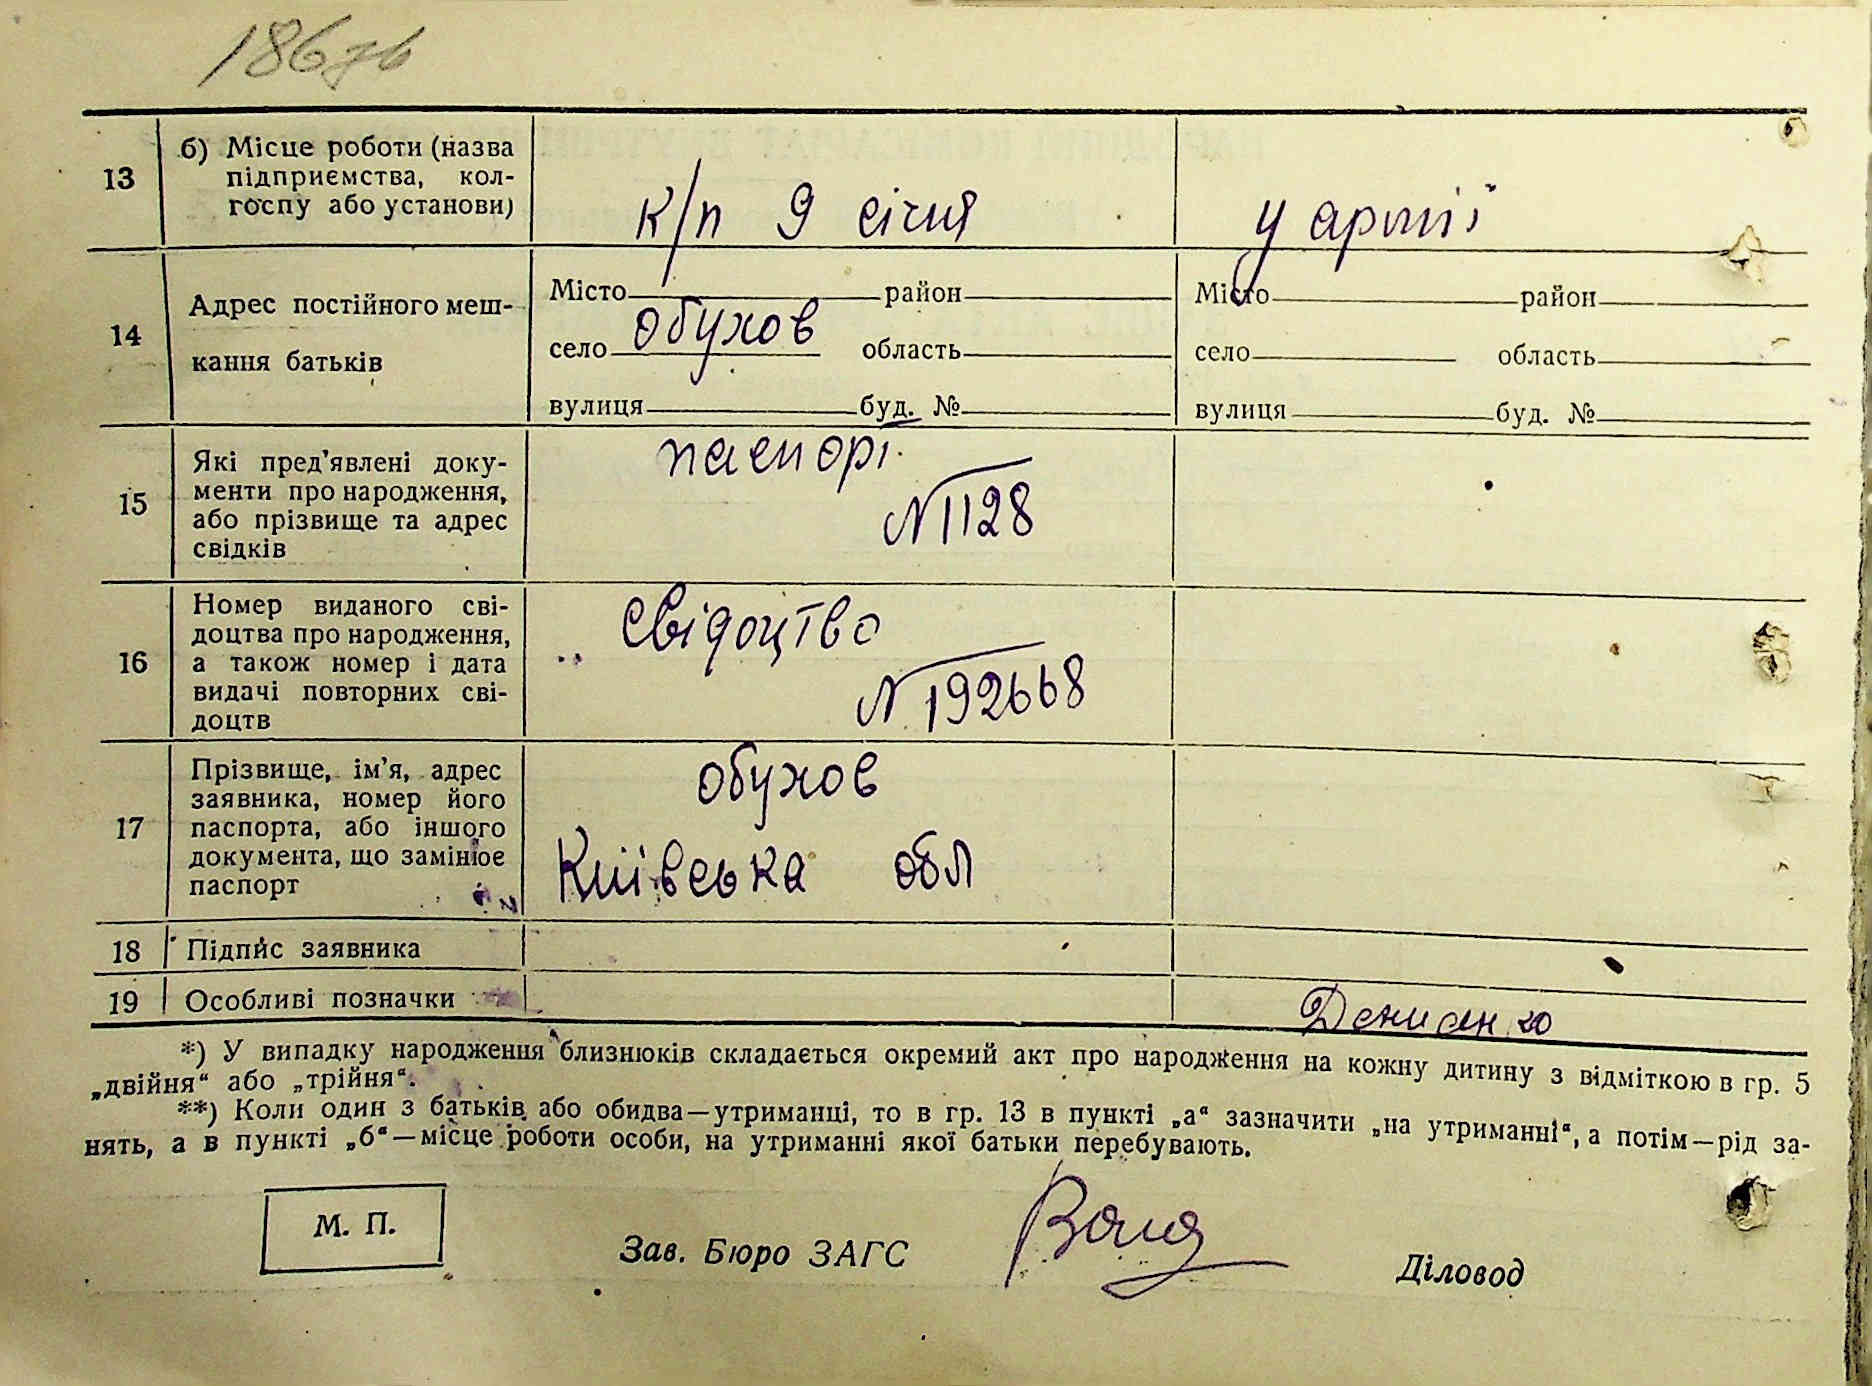 186 зв
13 б) Місце роботи (назва
підприємства, кол-
госпу або установи)
к/п 9 січня
у армії
14 Адрес постійного меш-
кання батьків
Місто район
село обухов область
вулиця буд. №
Місто район
село область
вулиця буд. №
15 Які пред'явлені доку-
менти про народження,
або прізвище та адрес
свідків
паспорт
№ 1128
16 Номер виданого сві-
доцтва про народження,
а також номер і дата
видачі повторних сві-
доцтв
свідоцтво
№ 192668
17 Прізвище, ім'я, адрес
заявника, номер його
паспорта, або іншого
документа, що замінює
паспорт
обухов
Київська обл
18 Підпис заявника
19 Особливі позначки
*) У випадку народження близнюків складається окремий акт про народження на кожну дитину з відміткою в гр. 5
„двійня“ або „трійня“.
**) Коли один з батьків або обидва—утриманці, то в гр. 13 в пункті „а“ зазначити „на утриманні“, а потім—рід за-
нять, а в пункті „б“—місце роботи особи, на утриманні якої батьки перебувають.
М. П.
Зав. Бюро ЗАГС
Діловод